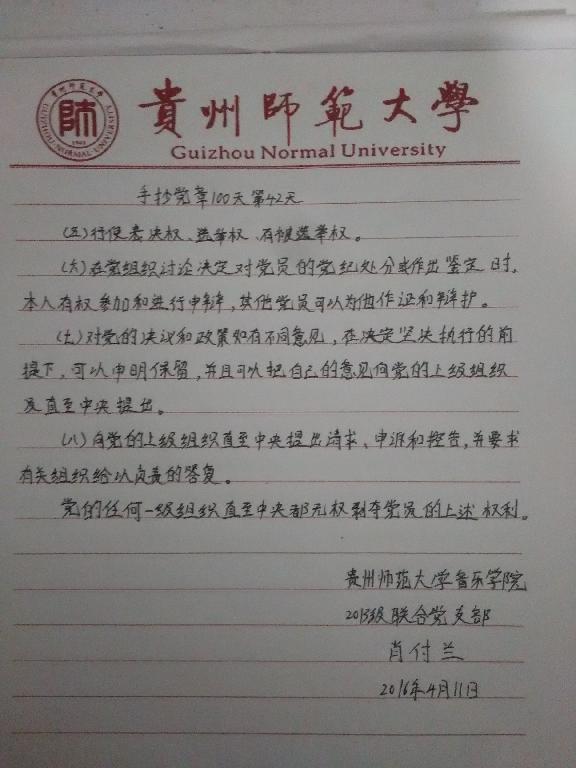 貴州師範大學
Guizhou Normal University
貴州師范大學
師
GUIZHOU NORMAL UNIVERSITY
1941
手抄党章100天第42天
(五)行使表决权、选举权、有被选举权。
(六)在党组织讨论决定对党员的党纪处分或作出鉴定时,
本人有权参加和进行申辩,其他党员可以为他作证和辩护。
(七)对党的决议和政策如有不同意见,在决定坚决执行的前
提下,可以申明保留,并且可以把自己的意见向党的上级组织
及直至中央提出。
(八)向党的上级组织直至中央提出请求、申诉和控告,并要求
有关组织给以负责的答复。
党的任何一级组织直至中央都无权剥夺党员的上述权利。
贵州师范大学音乐学院
2013级联合党支部
肖付兰
2016年4月11日